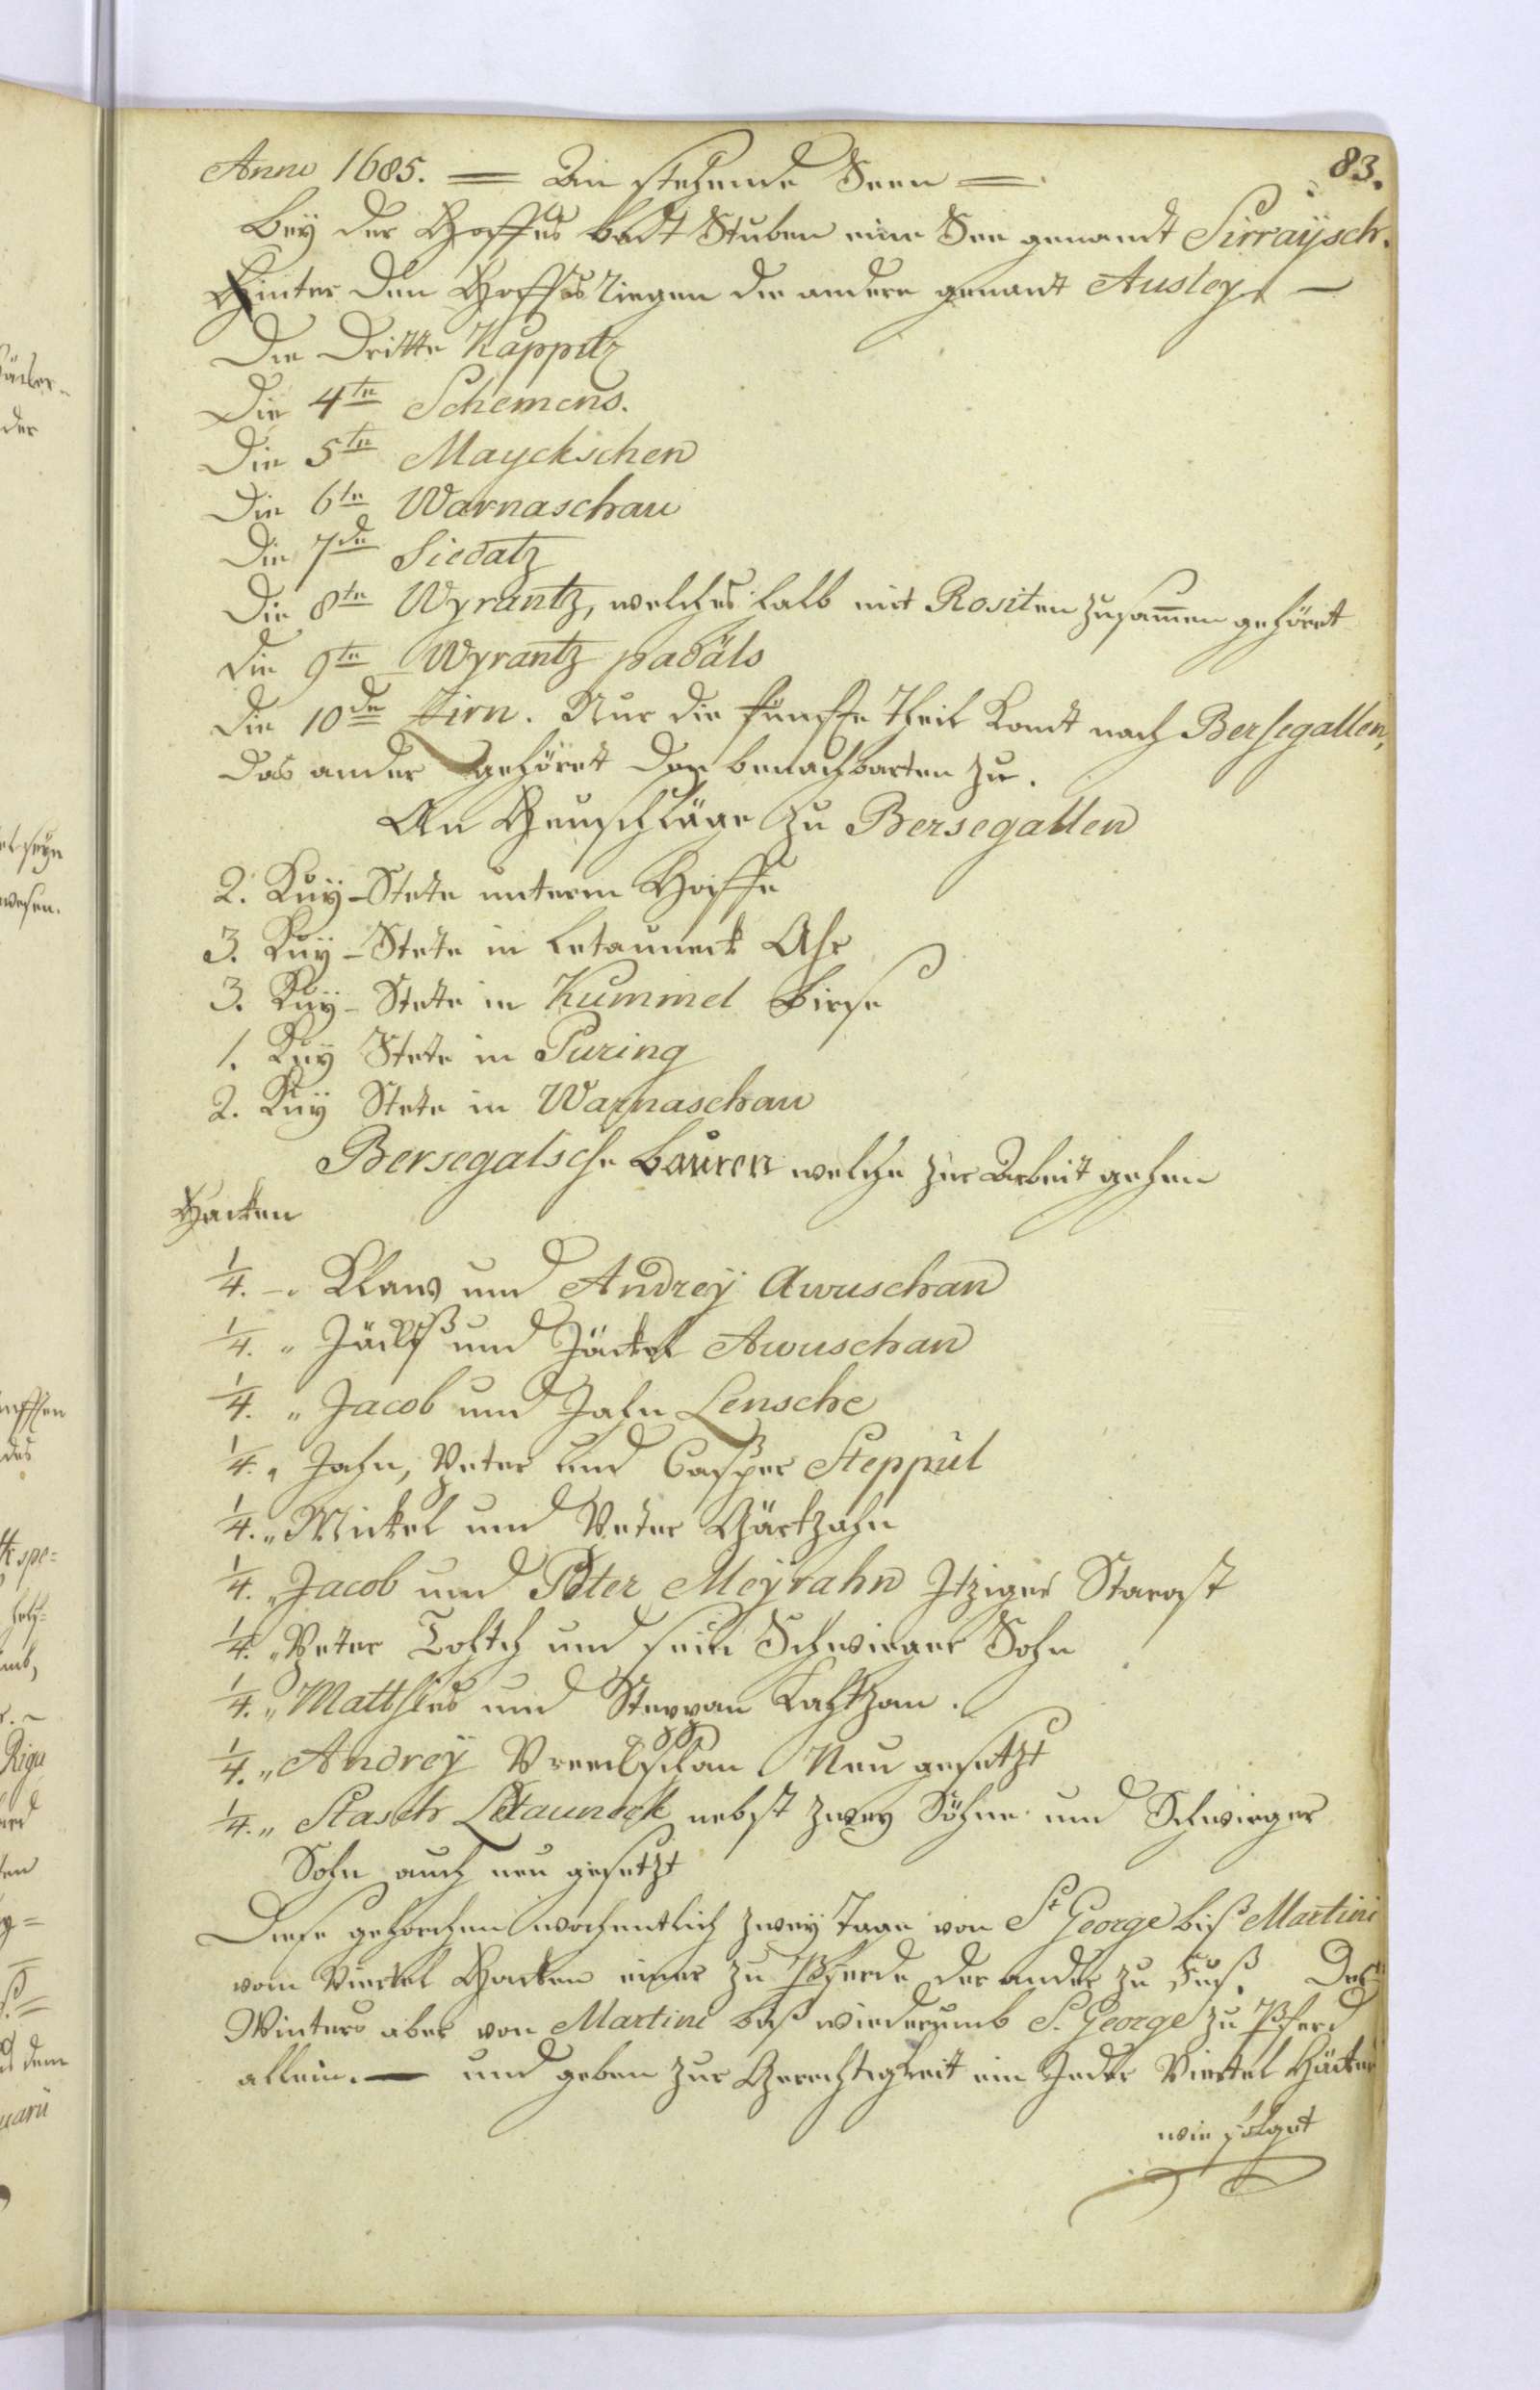 83.
Anno 1685. = An stehende Seen =
Bey der Hoffes Badt Stuben eine See genandt Sirraÿsch.
Hinter den Hoffes Riegen die andere genant Ausley. —
Die Dritte Kappitz
Die 4te Schemens.
Die 5te Mayckschen
Die 6te Warnaschau
Die 7de Siedatz
Die 8te Wyrantz, welches halb mit Rositen zusam̄en gehöret
die 9te Wyrantz padäls
die 10de Zirn. Nur die fünffte Theil komt nach Bersegallen,
das ander gehöret den benachbarten zu.
An Heuschläge zu Bersegallen
2. Kuÿ-Stete unterm Hoffe
3. Kuÿ-Stete in Letauneck Ahs
3. Kuÿ-Stette in Kummel Birse
1. Kuÿ Stete in Puring
2. Kuÿ Stete in Warnaschau
Bersegalsche Bauren welche zur Arbeit gehen
Hacken
1/4. - Klaws und Andrey Awuschan
1/4. " und Jäckel Awuschan
1/4. " Jacob und Jahn Lensche
1/4. " Jahn, Peter und Casper Steppul
1/4. " Mickel und Peter Gärkzahn
1/4. " Jacob und Peter Meyrahn Itziger Starost
1/4. " Peter Toltsch und sein Schwieger Sohn
1/4. " Matthies und Steppan Lahtzan.
1/4. " Andrey Neu gesetzt
1/4. " Stasch Letauneck nebst zwey Söhne und Schwieger
Sohn auch neu gesetzt
Diese gehorchen wochentlich zwey Tage von St George biß Martini
vom Viertel Hacken einer zu Pferde der ander zu Fuß. Des
Winters aber von Martini biß wiederumb S. George zu Pferd
allein. — und geben zur Gerechtigkeit ein Jeder Viertel Häcker
wie folget